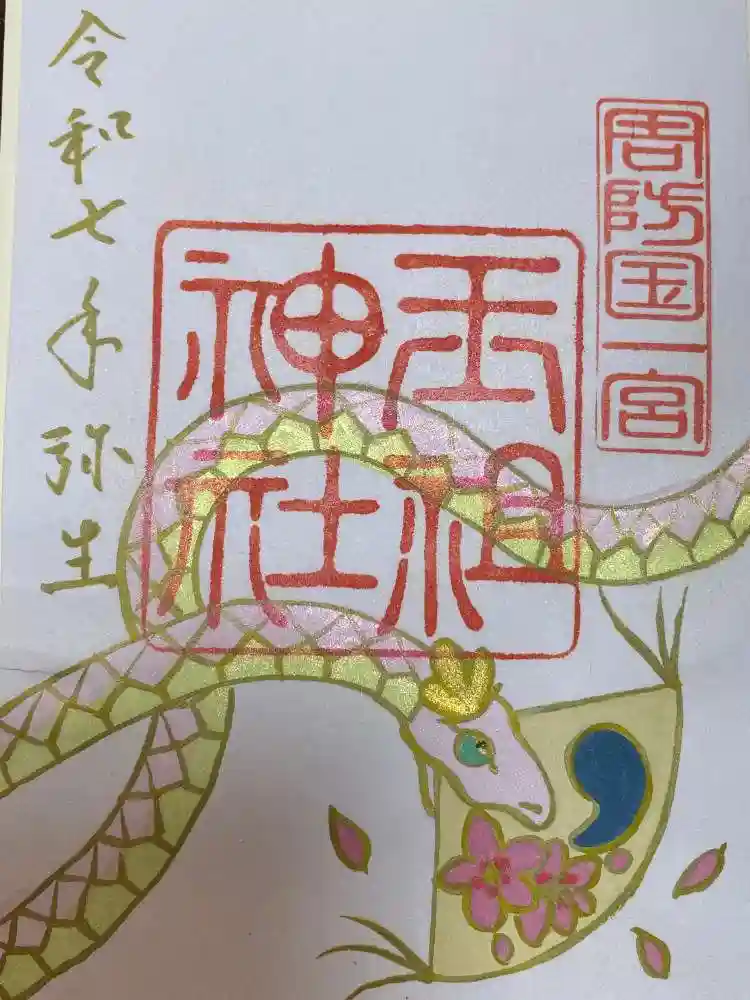 周防国一宮
玉祖
神社
令和七年弥生